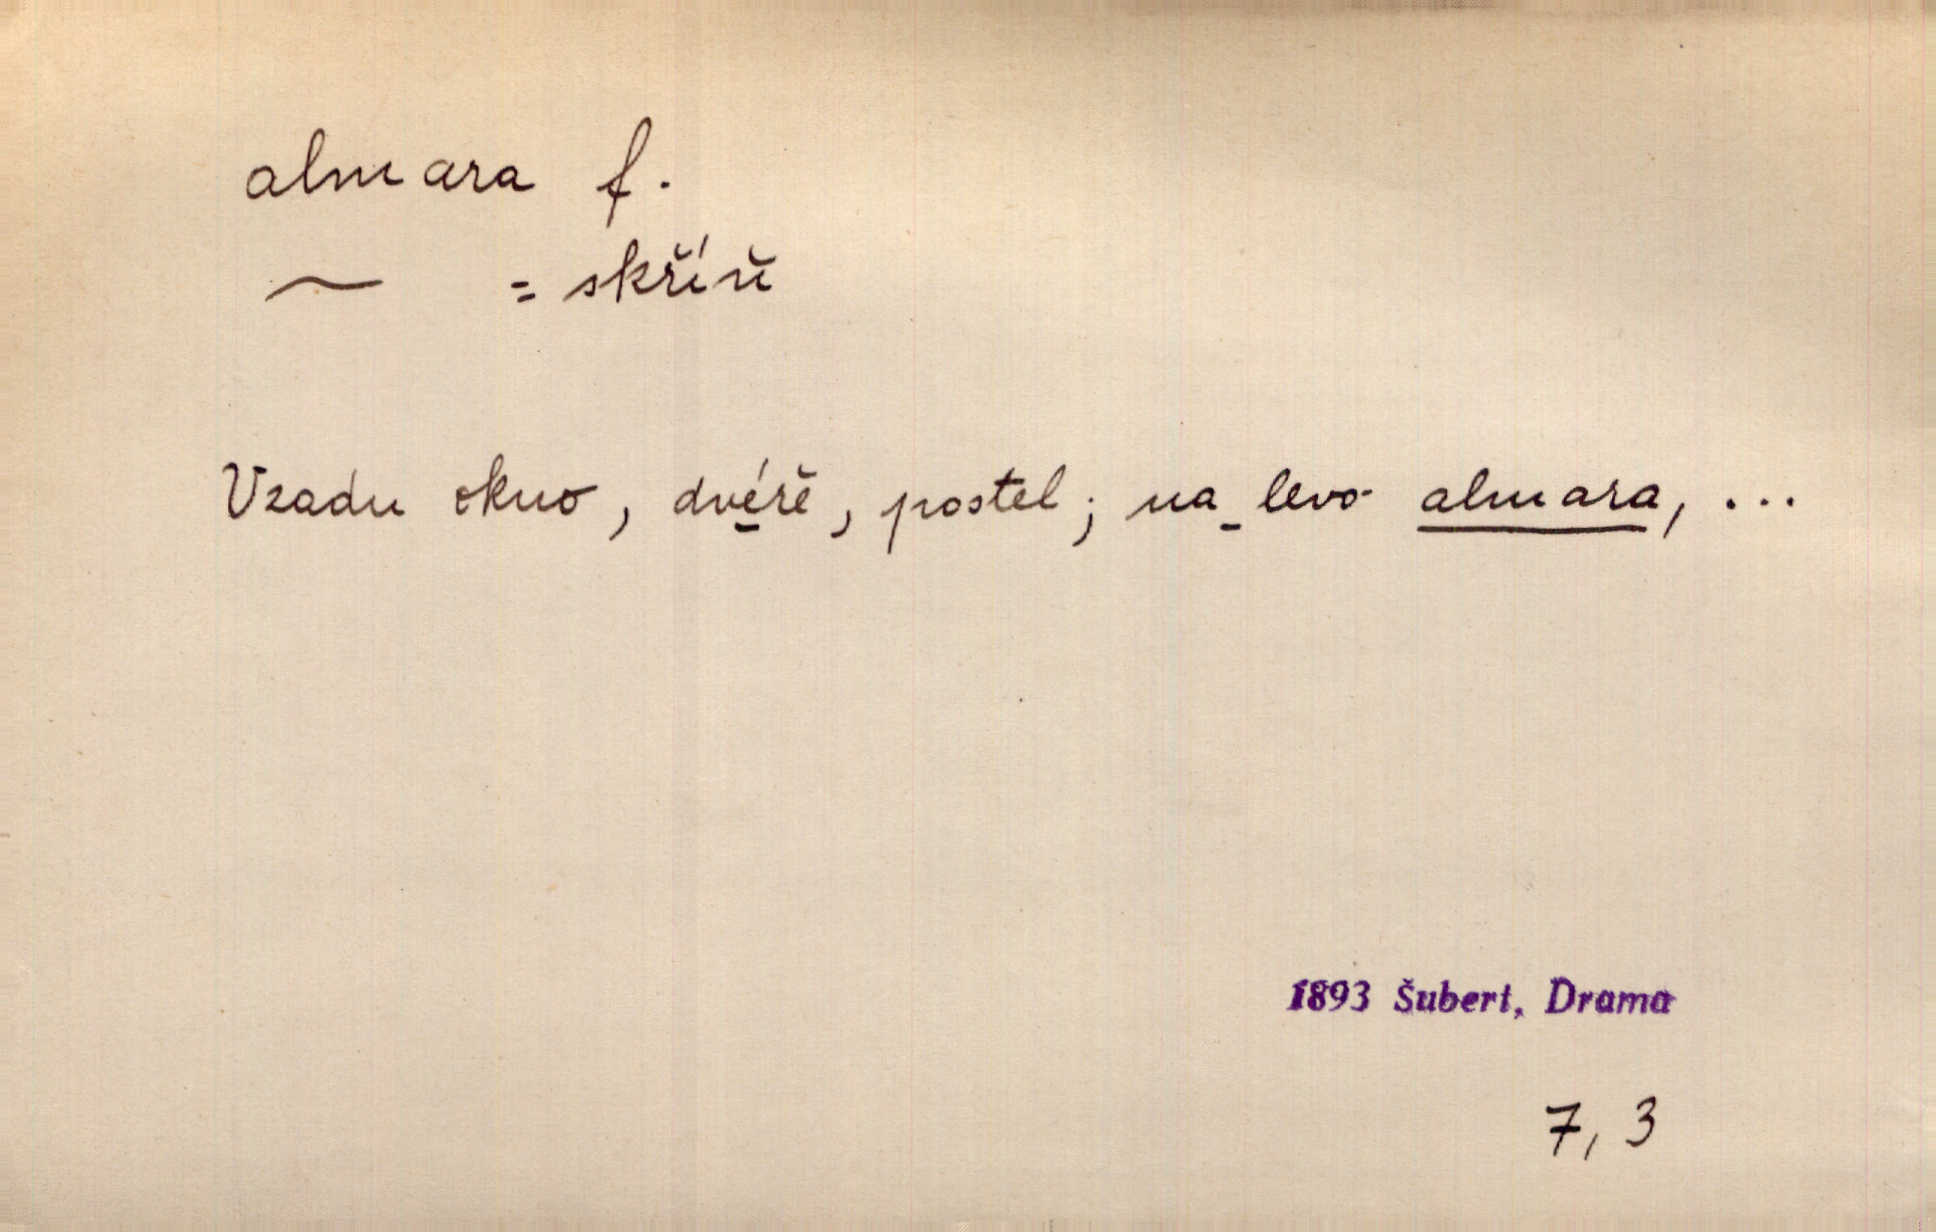 almara f.
~ = skříň
Vzadu okno, dvéře, postel; na levo almara, ...
1893 Šubert, Drama
7, 3